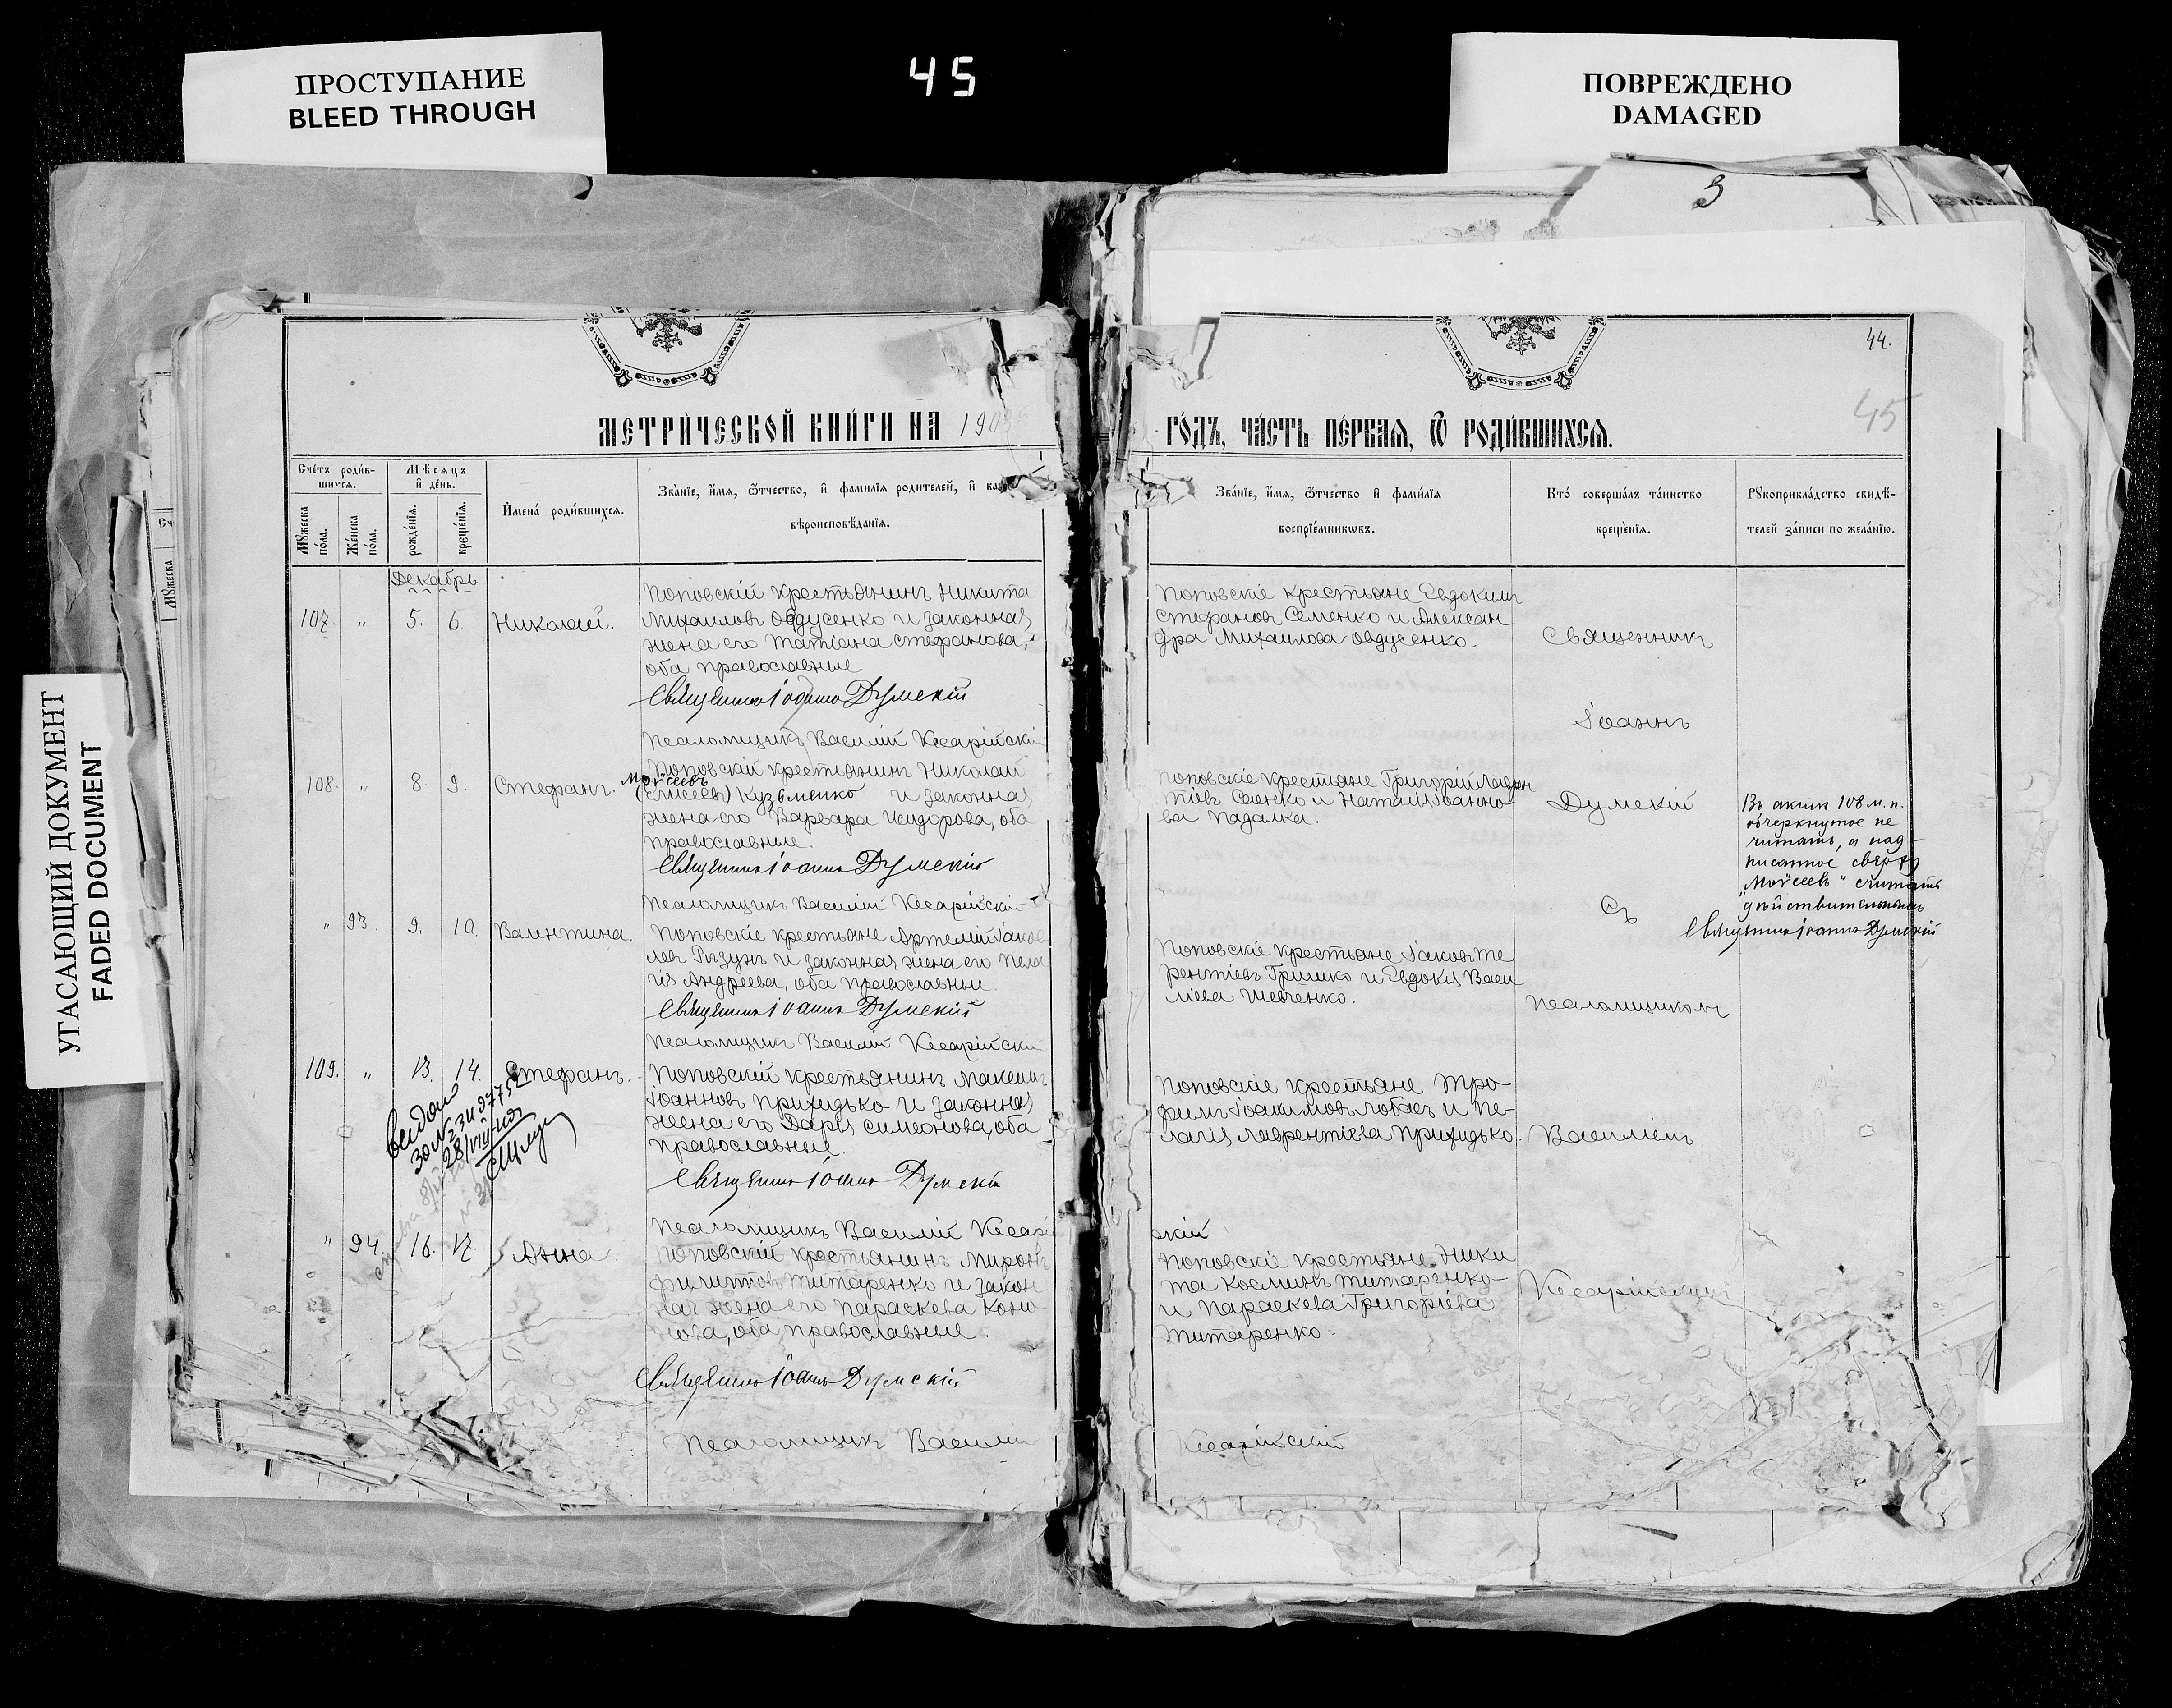 ПРОСТУПАНИЕ
BLEED THROUGH
45
ПОВРЕЖДЕНО
DAMAGED
УГАСАЮЩИЙ ДОКУМЕНТ
FADED DOCUMENT
3
44.
45
МЕТРИ́ЧЕСКОЙ КНИ́ГИ НА 190
ГО́ДЪ, ЧА́СТЬ ПЕ́РВАѦ, Ѿ РОДИ́ВШИХСѦ.
Сче́тъ роди́в-
шихсѧ.
Мѣсѧцъ
и҆ де́нь.
Мꙋжеска
по́ла.
Же́нска
по́ла.
рожде́нїѧ.
креще́нїѧ.
И҆мена̀ роди́вшихсѧ.
Зва́нїе, и҆́мѧ, ѻ҆́тчество, и҆ фами́лїѧ роди́телей, и҆
вѣроисповѣ́данїѧ.
Зва́нїе, и҆́мѧ, ѻ҆́тчество и҆ фами́лїѧ
воспрїе́мникѡвъ.
Кто́ соверша́лъ та́инство
креще́нїѧ.
Рꙋкоприкла́дство свидѣ́-
телей за́писи по жела́нїю.
Декабрь
107. " 5. 6. Николай.
Поповскій крестьянинъ Никита
Михаиловъ Овдусенко и законная
жена его Татіана Стефанова,
оба православные
Священникъ Іоаннъ Думскій
Псаломщикъ Василій Кесарійскі
Поповскіе крестьяне Евдокимъ
Стефановъ Семенко и Алексан
дра Михаилова Овдусенко.
108. " 8. 9. Стефанъ.
Поповскій крестьянинъ Николай
Моѵсеевъ
(Елисеевъ) Кузьменко и законная
жена его Варвара Исидорова, оба
православные.
Священникъ Іоаннъ Думскій
Псаломщикъ Василій Кесарійскі
Поповскіе крестьяне Григорій Лаврен
тіевъ Саенко и Наталія Іоанно-
ва Падалка.
Въ актѣ 108 м. п.
очеркнутое не
читать, а над-
писанное сверху
"Моѵсеевъ" считать
дѣйствительнымъ
Священникъ Іоаннъ Думскій
" 93. 9. 10. Валентина.
Поповскіе крестьяне Артемій Іаков
левъ Гызунъ и законная жена его Пела
гія Андреева, оба православные.
Священникъ Іоаннъ Думскій
Псаломщикъ Василій Кесарійскі
Поповскіе крестьяне Іаковъ Те
рентіевъ Гришко и Евдокія Васи
ліева Шевченко.
109. " 13. 14. Стефанъ.
Поповскій крестьянинъ Максимъ
Іоанновъ Приходько и законная
жена его Дарія Симеонова, оба
православные.
Священникъ Іоаннъ Думскій
Псаломщикъ Василій Кесарій
скій
Поповскіе крестьяне Тро
фимъ Іоакимовъ Лобасъ и Пе-
лагія Лаврентіева Приходько.
" 94. 16. 17. Анна.
Поповскій крестьянинъ Миронъ
Филипповъ Титаренко и закон
ная жена его Параскева Коно
нова, оба православные.
Священникъ Іоаннъ Думскій
Псаломщикъ Василій
Кесарійскій
Поповскіе крестьяне Ники
та Космынъ Титаренко
и Параскева Григоріева
Титаренко.
Священникъ
Іоаннъ
Думскій
Съ
Псаломщикомъ
Василіемъ
Кесарійскимъ